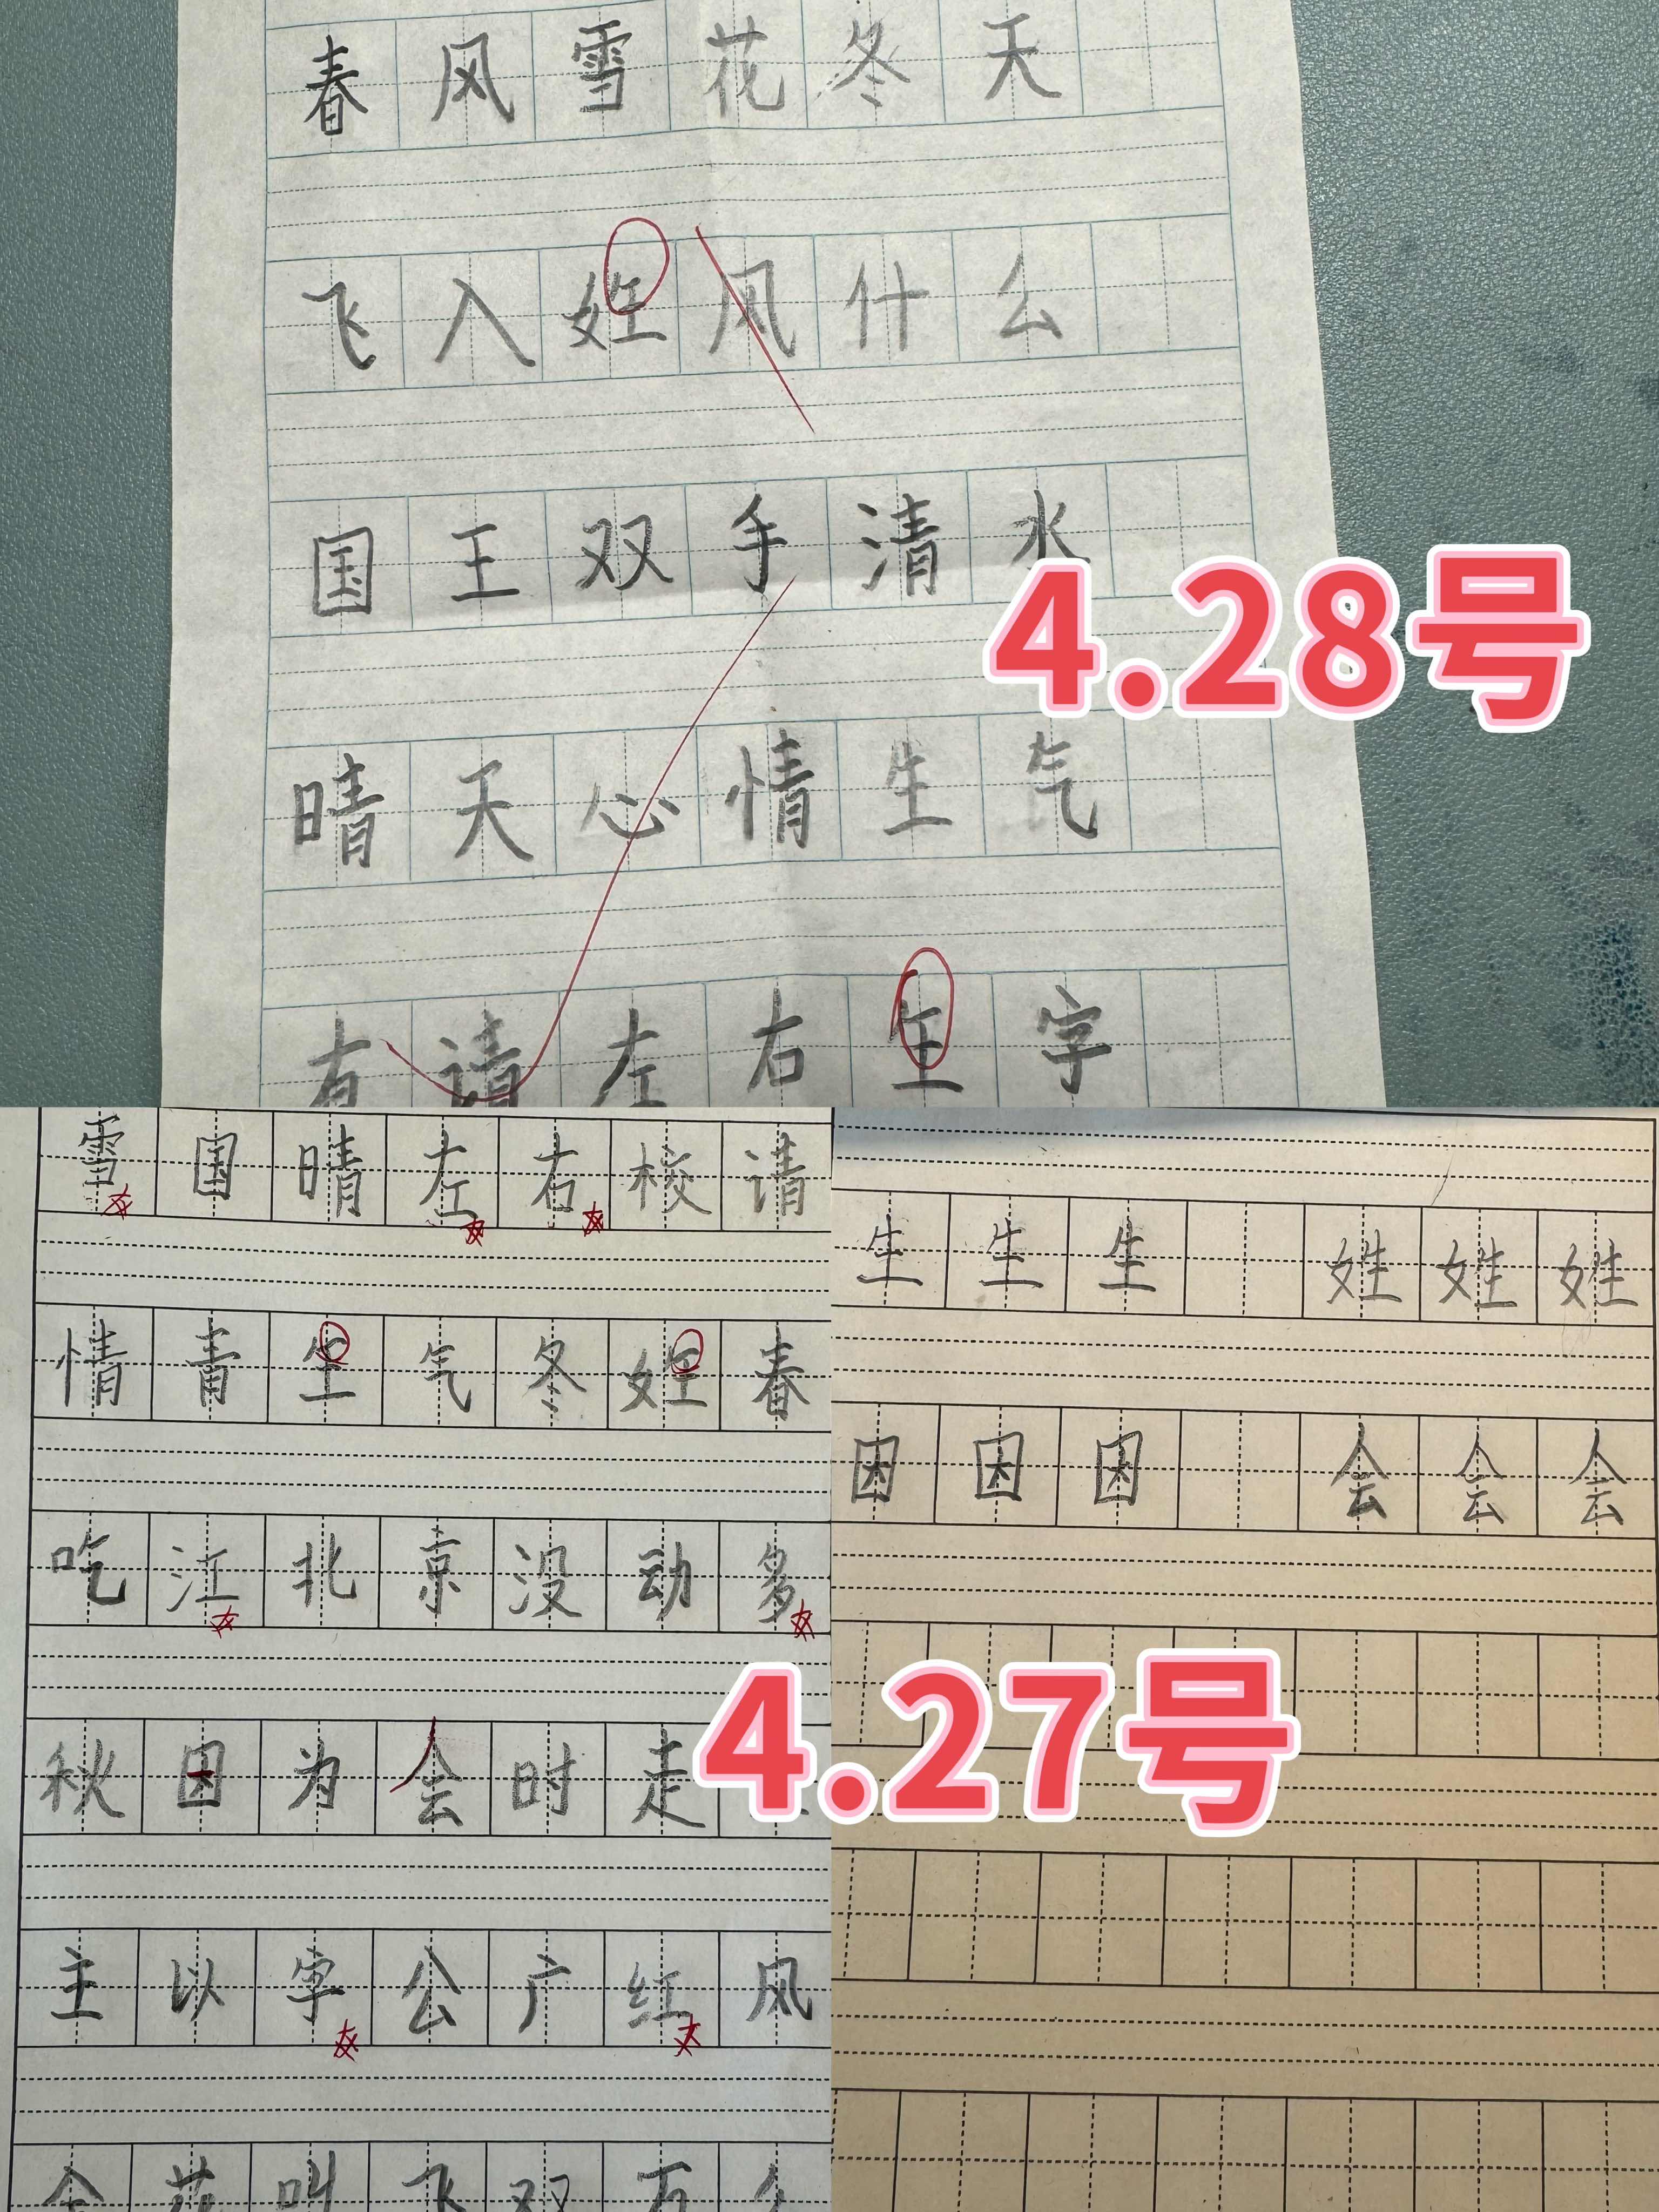 春风雪花冬天
飞入姓风什么
国王双手清水
4.28号
晴天心情生气
有请左右生字
雪国晴左右校请
情青生气冬姓春
吃江北京没动多
秋因为会时走
4.27号
主以字公广红风
全花叫飞双万
生生生 姓姓姓
因因因 会会会